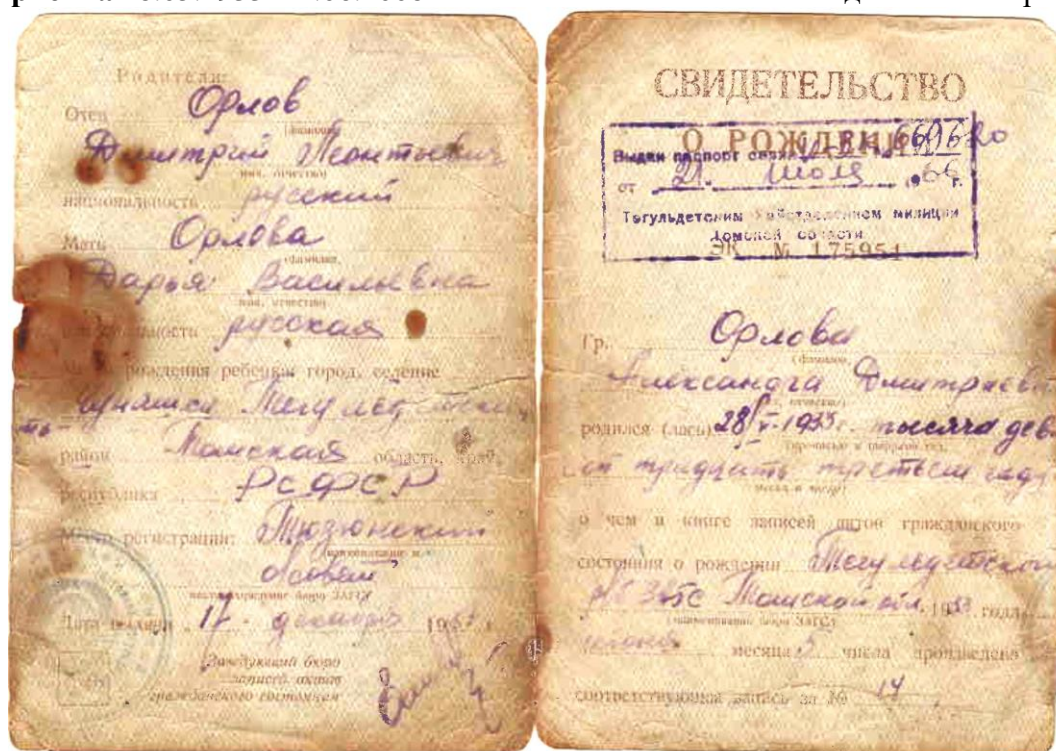 Родители:
Отец Орлов
(фамилия)
Дмитрий Леонтьевич
имя, отчество
национальность русский
Мать Орлова
(фамилия)
Дарья Васильевна
имя, отчество
русская
рождения ребенка: город, селение
район Томская область, край,
республика РСФСР
Место регистрации: Тюзюнский
с/совет
Дата выдачи 17 декабря 19
Заведующий бюро
записей актов
гражданского состояния
СВИДЕТЕЛЬСТВО
О РОЖДЕНИИ
Выдан паспорт серия 669620
от 21. июля 1966 г.
Тегульдетским милиции
Томской области
ЭК № 175951
Гр. Орлова
(фамилия)
Александра Дмитриев
(имя, отчество)
родился (лась) 28/V-1933 г. тысяча дев
(прописью и цифрами год,
от тридцать третьем году
месяц и число)
о чем в книге записей актов гражданского
состояния о рождении Тегульдетском
ЗАГС Томской обл. 19 года
(наименование бюро ЗАГСа)
месяца 5 числа произведена
соответствующая запись за № 14